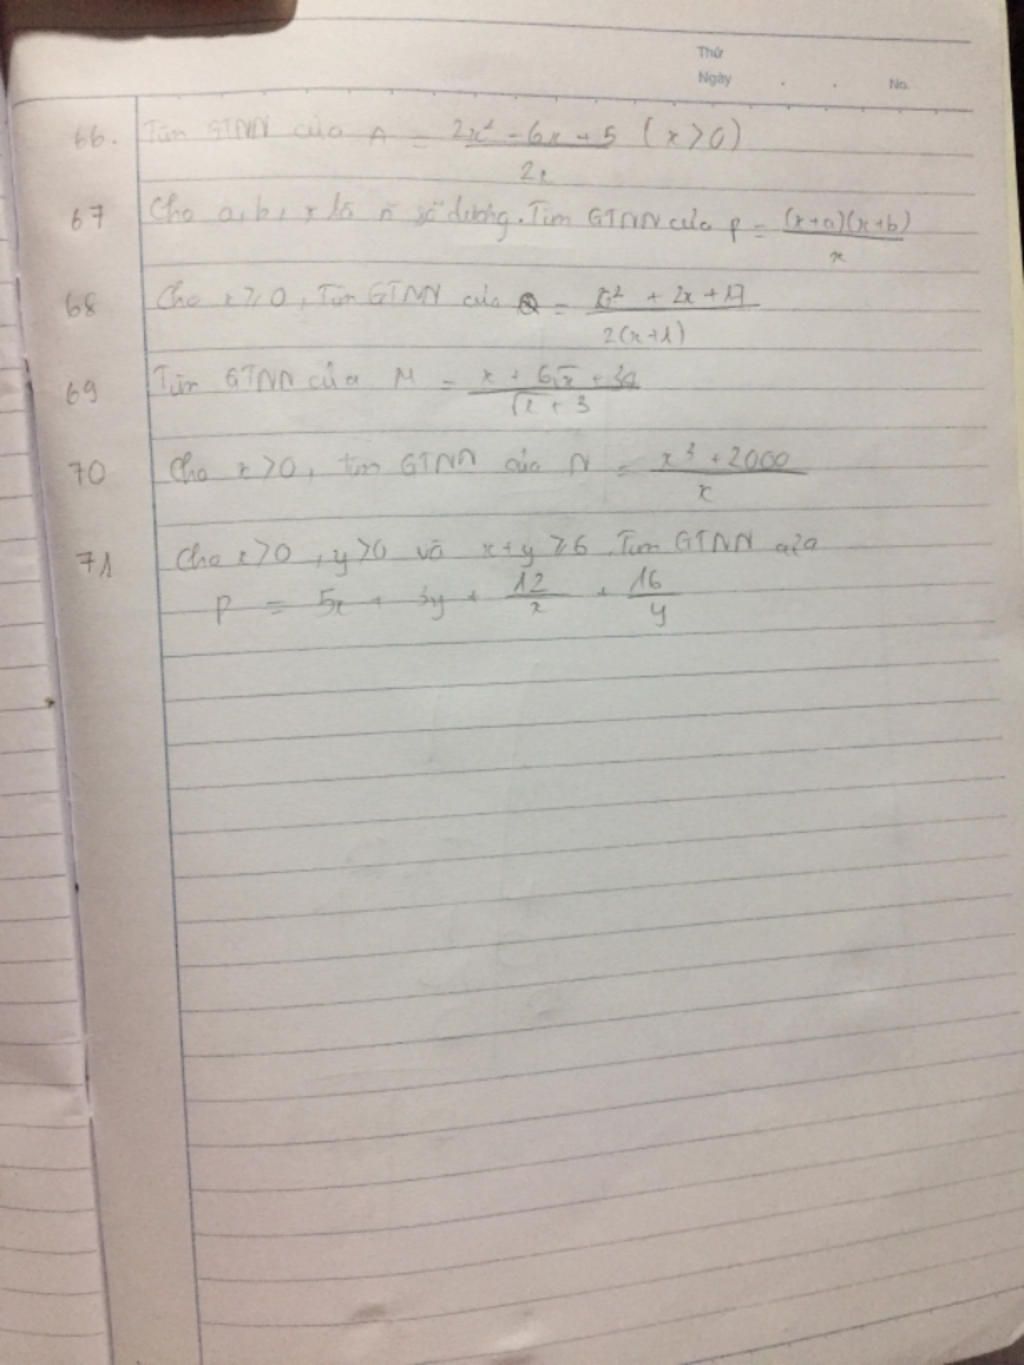 Thứ
Ngày . . No.
66. Tìm GTNN của A = \frac{2x² - 6x + 5}{2x} (x > 0)
67 Cho a, b, x là n số dương. Tìm GTNN của P = \frac{(x+a)(x+b)}{x}
68 Cho x ≥ 0, Tìm GTNN của Q = \frac{x² + 2x + 17}{2(x+1)}
69 Tìm GTNN của M = \frac{x + 6√x + 34}{√x + 3}
70 Cho x > 0, tìm GTNN của N = \frac{x³ + 2000}{x}
71 Cho x > 0, y > 0 và x + y ≥ 6. Tìm GTNN của
P = 5x + 3y + \frac{12}{x} + \frac{16}{y}